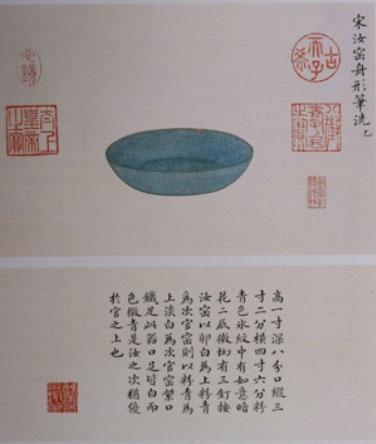 宋汝窑舟形筆洗 乙
古稀天子
八徵耄念之寶
太上皇帝之寶
高一寸深八分口縱三
寸二分橫四寸六分粉
青色冰紋中有如意暗
花二底微拗有三釘按
汝窑以卵白為上粉青
為次官窑則以粉青為
上淡白為次官窑紫口
鐵足此器口足皆白而
色微青是汝之次猶優
於官之上也